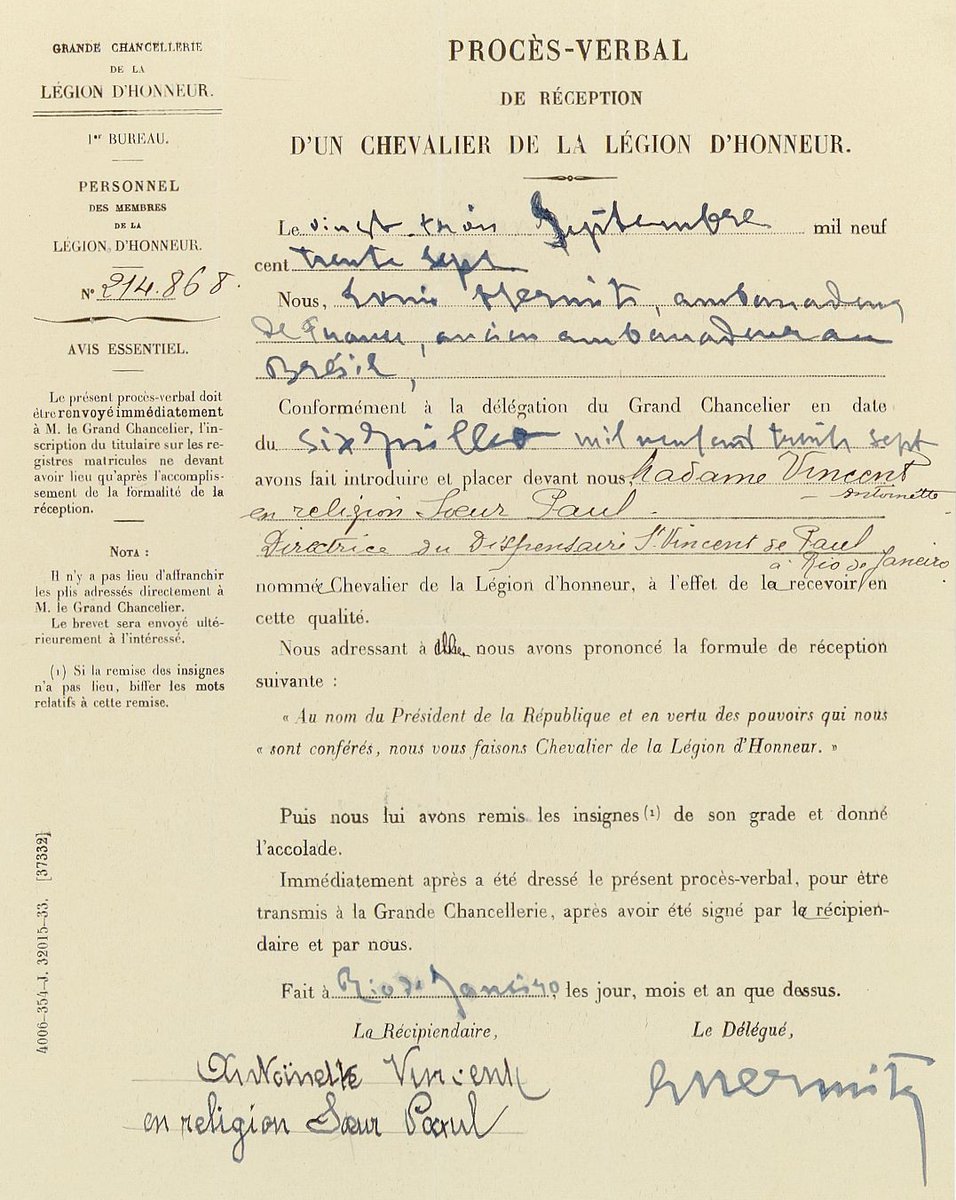 GRANDE CHANCELLERIE
DE LA
LÉGION D'HONNEUR.
1er BUREAU.
PERSONNEL
DES MEMBRES
DE LA
LÉGION D'HONNEUR.
N° 214.868.
AVIS ESSENTIEL.
Le présent procès-verbal doit
être renvoyé immédiatement
à M. le Grand Chancelier, l'in-
scription du titulaire sur les re-
gistres matricules ne devant
avoir lieu qu'après l'accomplis-
sement de la formalité de la
réception.
NOTA :
Il n'y a pas lieu d'affranchir
les plis adressés directement à
M. le Grand Chancelier.
Le brevet sera envoyé ulté-
rieurement à l'intéressé.
(1) Si la remise des insignes
n'a pas lieu, biffer les mots
relatifs à cette remise.
4006-354-J. 32015-33. [37332]
PROCÈS-VERBAL
DE RÉCEPTION
D'UN CHEVALIER DE LA LÉGION D'HONNEUR.
Le vingt-trois Septembre mil neuf
cent trente sept
Nous, Louis Hermite, ambassadeur
de France, ancien ambassadeur au
Brésil,
Conformément à la délégation du Grand Chancelier en date
du six juillet mil neuf cent trente sept
avons fait introduire et placer devant nous, Madame Vincent
Antoinette
en religion Sœur Paul.
Directrice du Dispensaire St Vincent de Paul
à Rio de Janeiro
nommée Chevalier de la Légion d'honneur, à l'effet de la recevoir en
cette qualité.
Nous adressant à elle, nous avons prononcé la formule de réception
suivante :
« Au nom du Président de la République et en vertu des pouvoirs qui nous
« sont conférés, nous vous faisons Chevalier de la Légion d'Honneur. »
Puis nous lui avons remis les insignes (1) de son grade et donné
l'accolade.
Immédiatement après a été dressé le présent procès-verbal, pour être
transmis à la Grande Chancellerie, après avoir été signé par la récipien-
daire et par nous.
Fait à Rio de Janeiro, les jour, mois et an que dessus.
La Récipiendaire,
Le Délégué,
Antoinette Vincent
en religion Sœur Paul
LHermite